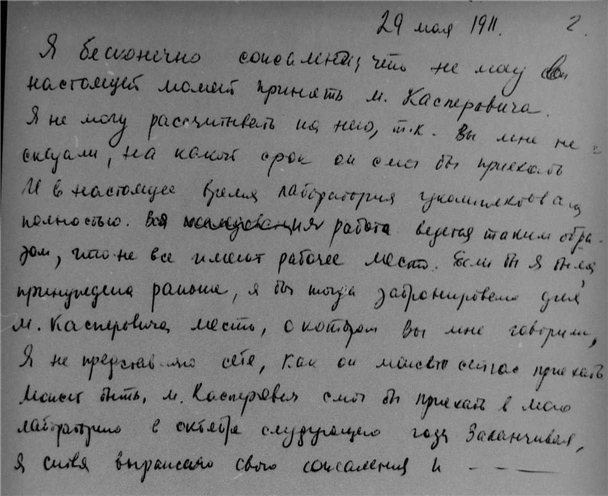 29 мая 1911. 2.
Я бесконечно сожалею, что не могу в
настоящей момент принять м. Касперовича.
Я не могу рассчитывать на него, т.к. Вы мне не
сказали, на какой срок он смог бы приехать
И в настоящее время лаборатория укомплектована
полностью. Вся работа ведется таким обра-
зом, что не все имеют рабочее место. Если бы я была
принуждена раньше, я бы тогда забронировала для
м. Касперовича место, о котором Вы мне говорили,
Я не представляю себе, как он может сейчас приехать
Может быть, м. Касперович смог бы приехать в мою
лабораторию в октябре следующего года Заканчивая,
я снова выражаю свои сожаления и — — —